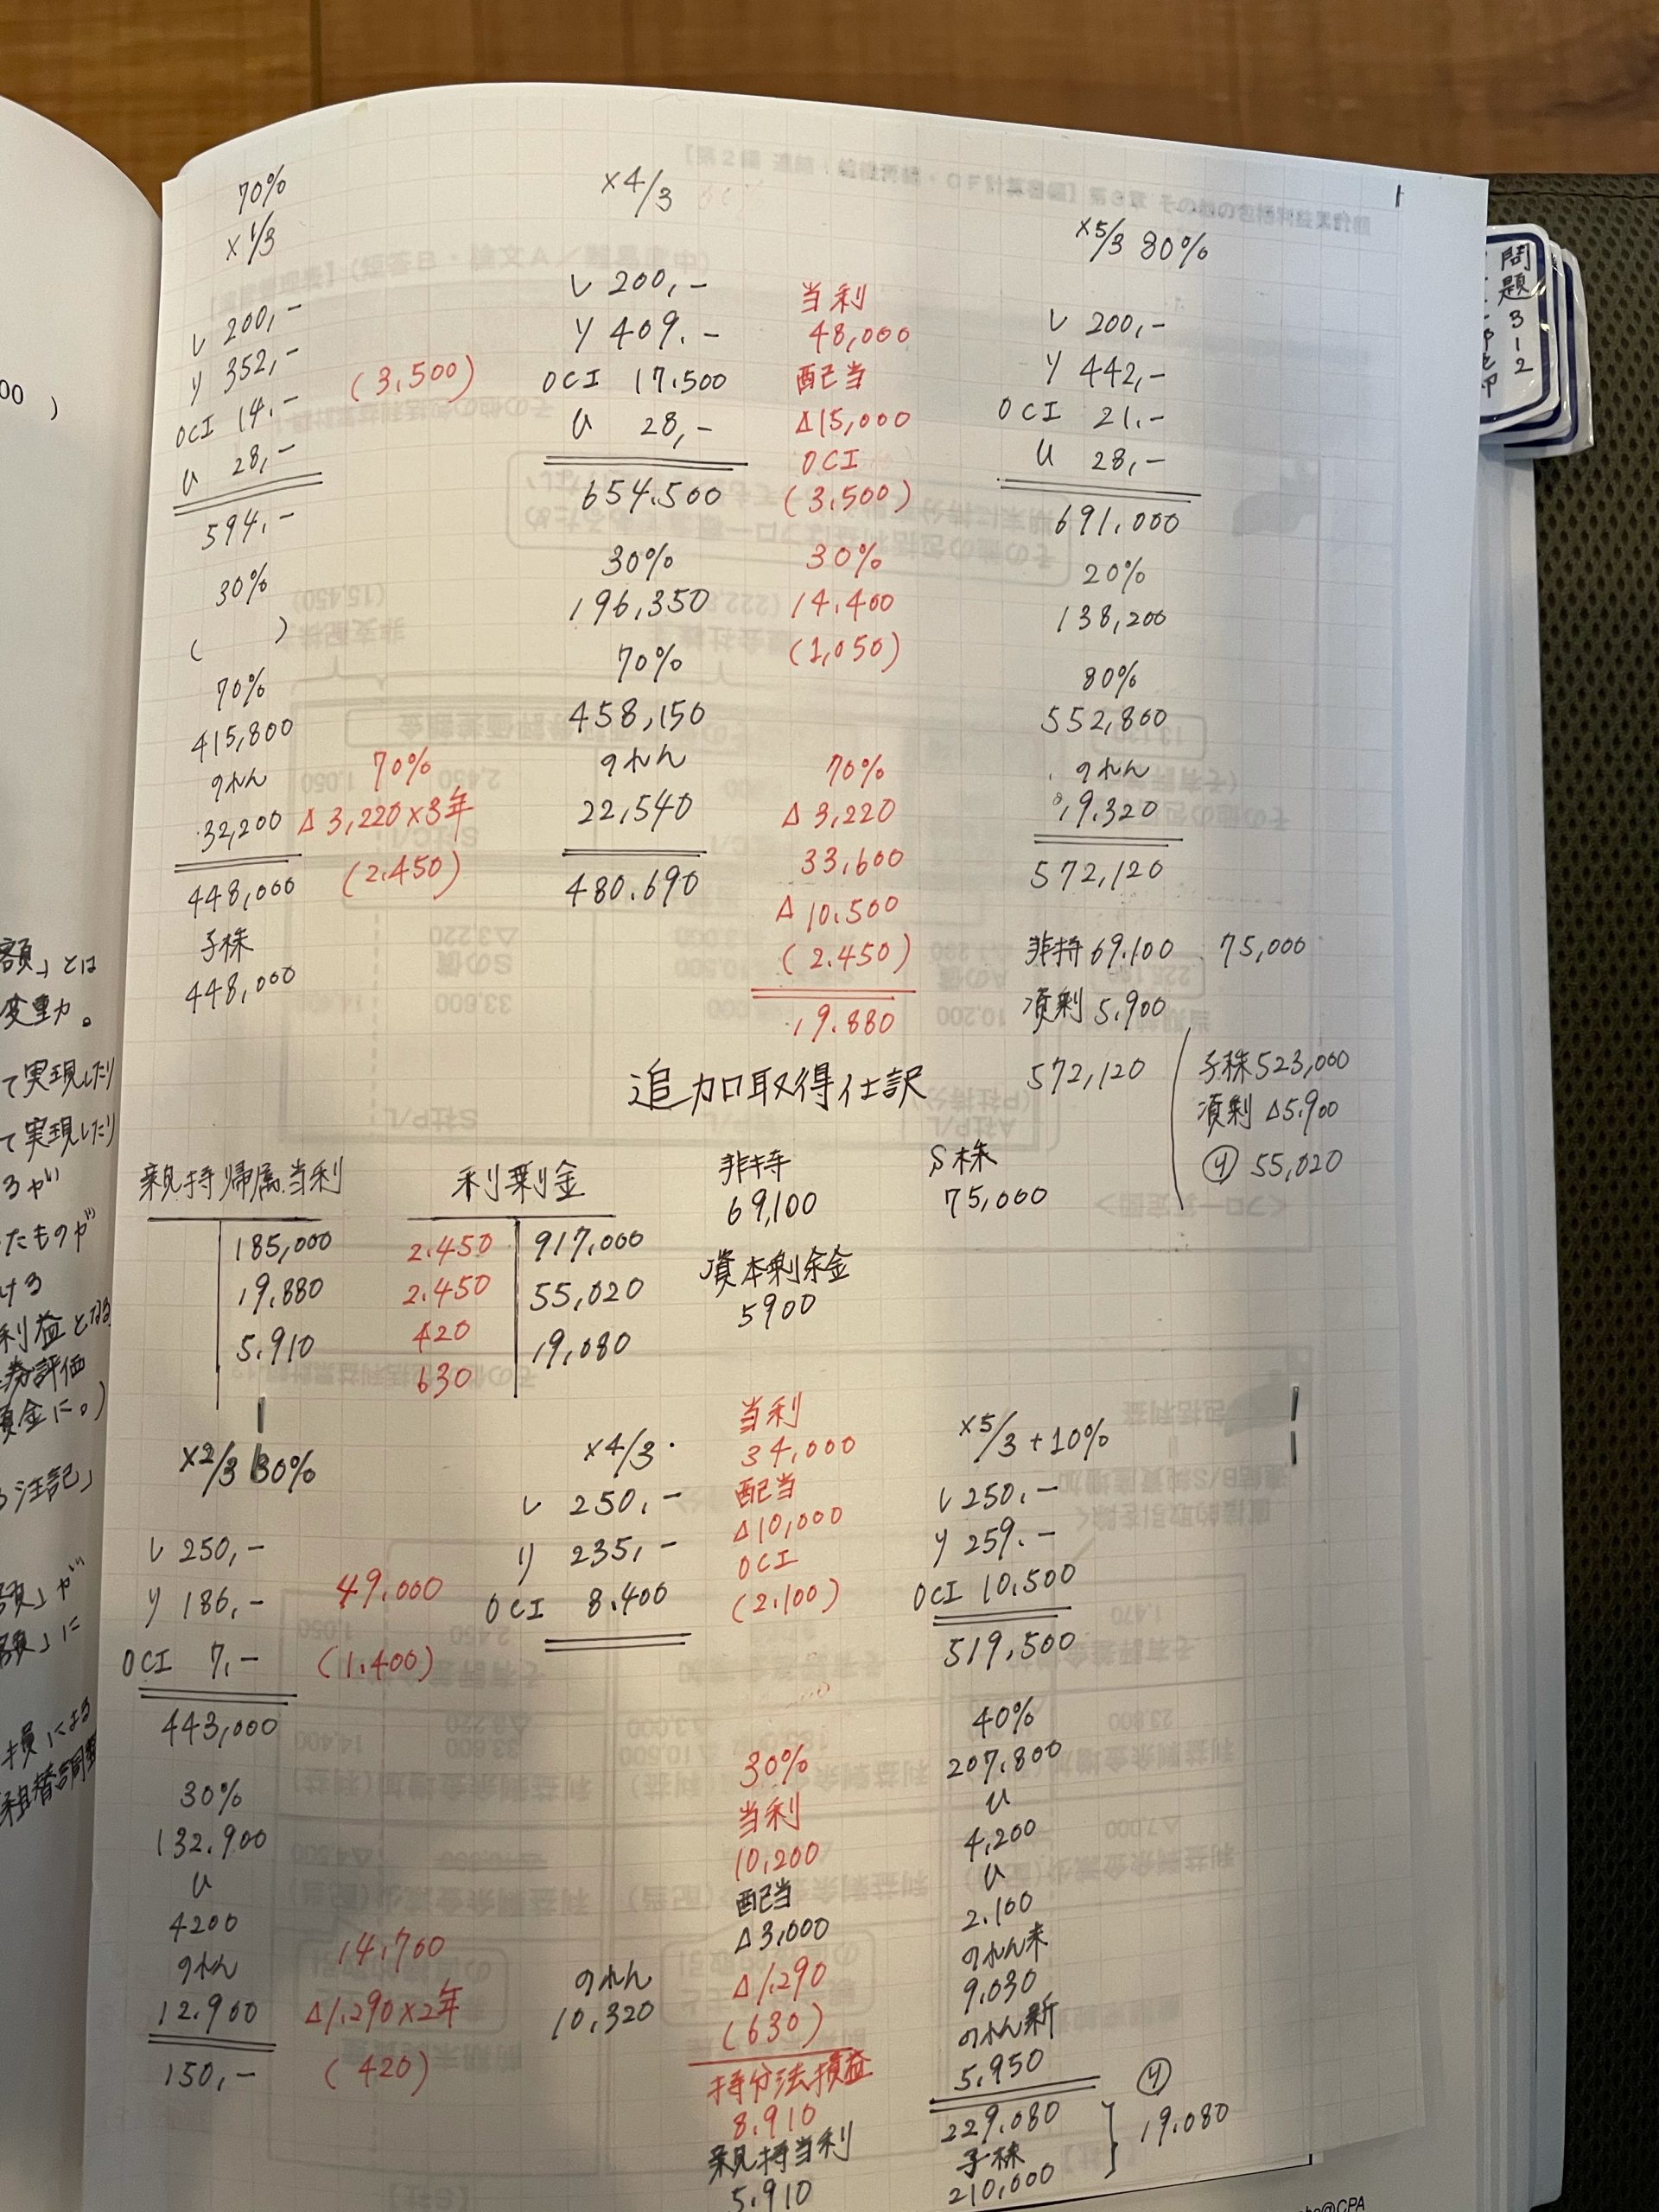 70%
×1/3
し 200,-
り 352,-
(3,500)
OCI 14,-
U 28,-
594,-
30%
( )
70%
415,800
のれん
32,200
70%
Δ3,220×3年
448,000
(2,450)
子株
448,000
×4/3
し 200,-
り 409.-
OCI 17,500
U 28,-
654,500
30%
196,350
70%
458,150
のれん
22,540
480,690
当利
48,000
配当
Δ15,000
OCI
(3,500)
30%
14,400
(1,050)
70%
Δ3,220
33,600
Δ10,500
(2,450)
19,880
×5/3 80%
し 200,-
り 442,-
OCI 21,-
U 28,-
691,000
20%
138,200
80%
552,800
のれん
19,320
572,120
非持 69,100 75,000
資剰 5,900
572,120
子株 523,000
資剰 Δ5,900
り 55,020
追加取得仕訳
非持
69,100
S株
75,000
資本剰余金
5900
親持帰属当利
185,000
19,880
5,910
利剰金
2,450 917,000
2,450 55,020
420 19,080
630
×2/3 30%
し 250,-
り 186,-
49,000
OCI 7,-
(1,400)
443,000
30%
132,900
U
4200
のれん
14,700
12,900
Δ1,290×2年
150,-
(420)
×4/3
し 250,-
り 235,-
OCI 8,400
のれん
10,320
当利
34,000
配当
Δ10,000
OCI
(2,100)
30%
当利
10,200
配当
Δ3,000
Δ1,290
(630)
持分法損益
8,910
親持当利
5,910
×5/3 +10%
し 250,-
り 259.-
OCI 10,500
519,500
40%
207,800
U
4,200
U
2,100
のれん未
9,030
のれん新
5,950
229,080
子株
210,000
り
19,080
額」とは
変動。
て実現したり
て実現したり
たものが
ける
利益となる
券評価
注記」
額」が
額」に
損による
組替調整
問題312
@CPA